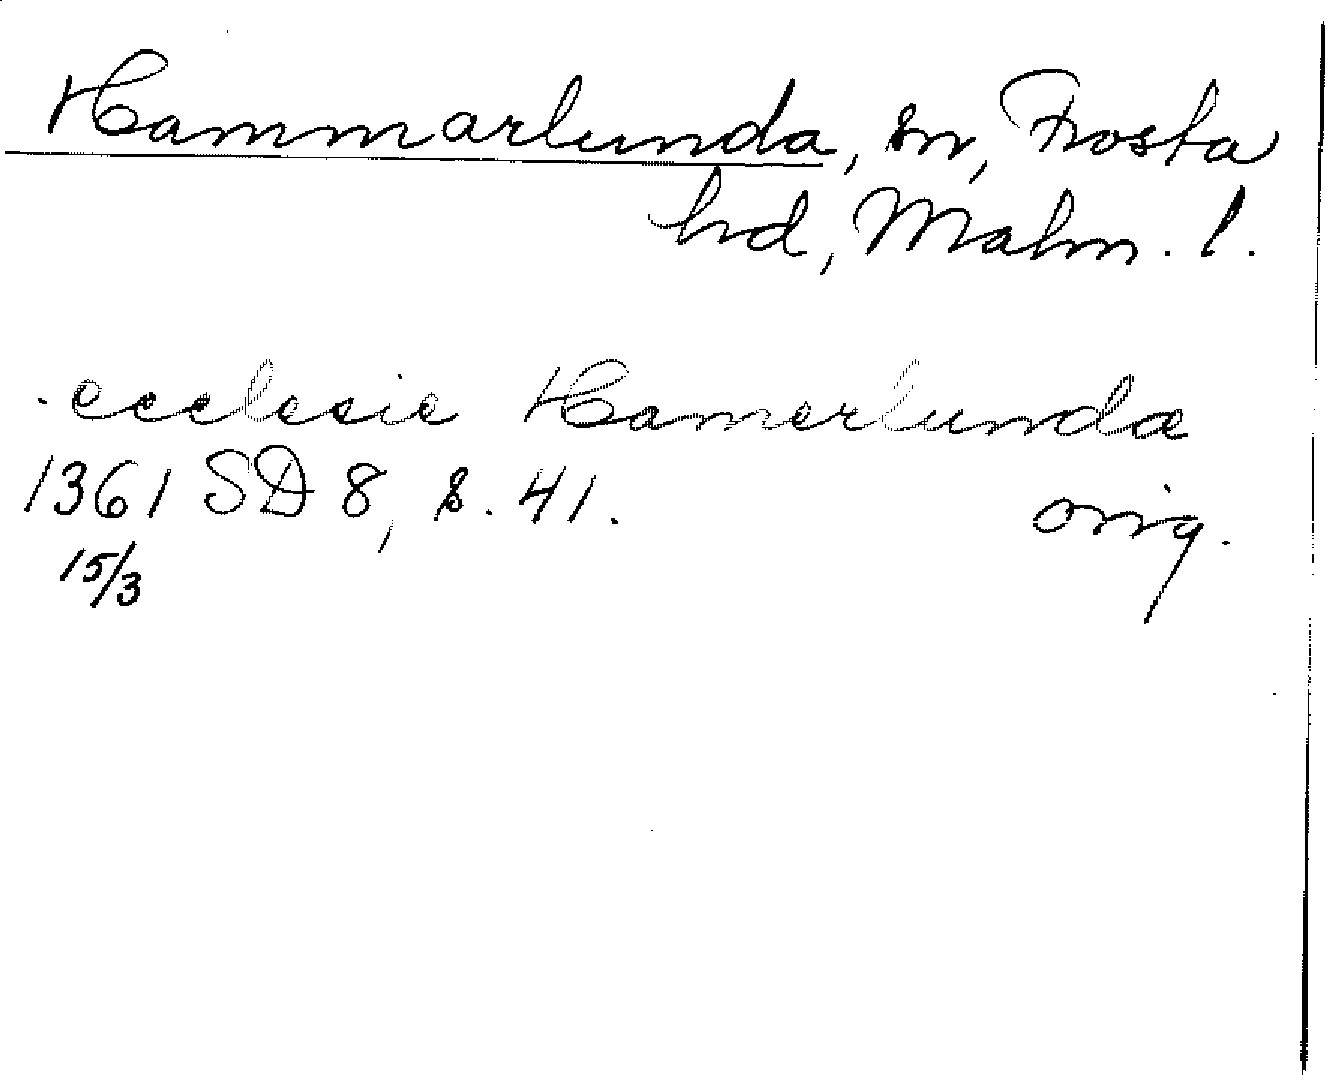 Hammarlunda, sn, Frosta
hd, Malm. l.
ecclesie Hamerlunda
1361 SD 8, s. 41. orig.
15/3